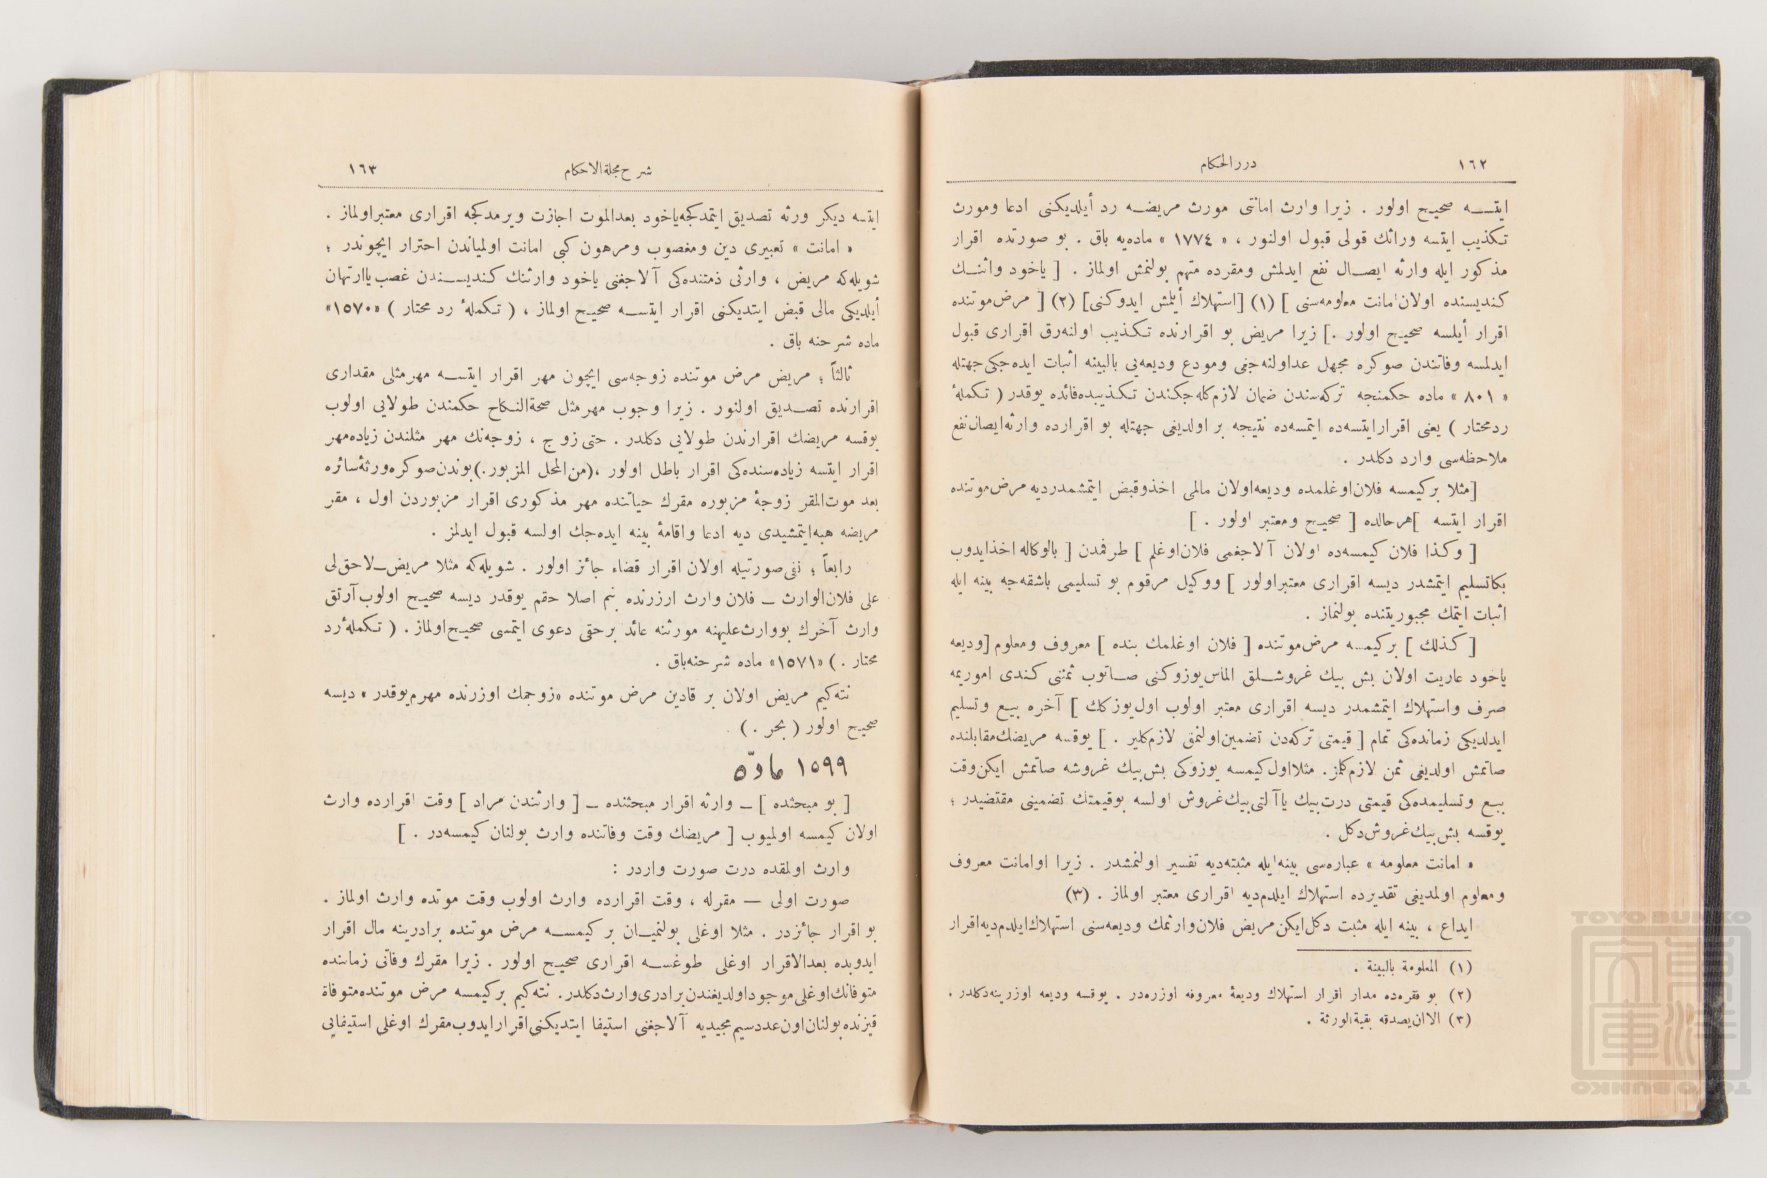 ١٦٢
درر الحكام
ايتسه صحيح اولور . زيرا وارث امانتى مورث مريضه رد أيلديكنى ادعا ومورث
تكذيب ايتسه وراثك قولى قبول اولنور ، « ١٧٧٤ » ماده‌يه باق . بو صورتده اقرار
مذكور ايله وارثه ايصال نفع ايدلمش ومقرده متهم بولنمش اولماز . [ ياخود واثنك
كنديسنده اولان امانت معلومه‌سنى ] (١) [استهلاك أيلمش ايدوكنى] (٢) [ مرض موتنده
اقرار أيلسه صحيح اولور .] زيرا مريض بو اقرارنده تكذيب اولنه‌رق اقرارى قبول
ايدلمسه وفاتندن صوكره مجهل عد اولنه‌جغى ومودع وديعه‌يى بالبينه اثبات ايده‌جكى جهتله
« ٨٠١ » ماده حكمنجه تركه‌سندن ضمان لازم‌كله‌جكندن تكذيبده‌فائده يوقدر ( تكملهٔ
ردمختار ) يعنى اقرار ايتسه‌ده ايتمسه‌ده نتيجه بر اولديغى جهتله بو اقرارده وارثه‌ايصال‌نفع
ملاحظه‌سى وارد دكلدر .
[مثلا بركيمسه فلان‌اوغلمده وديعه‌اولان مالمى اخذوقبض ايتمشمدرديه مرض‌موتنده
اقرار ايتسه ]هرحالده [ صحيح ومعتبر اولور . ]
[ وكذا فلان كيمسه‌ده اولان آلاجغمى فلان‌اوغلم ] طرفمدن [ بالوكاله اخذايدوب
بكاتسليم ايتمشدر ديسه اقرارى معتبراولور ] ووكيل مرقوم بو تسليمى باشقه‌جه بينه ايله
اثبات ايتمك مجبوريتنده بولنماز .
[ كذلك ] بركيمسه مرض‌موتنده [ فلان اوغلمك بنده ] معروف ومعلوم [وديعه
ياخود عاريت اولان بش بيك غروشلق الماس‌يوزوكنى صاتوب ثمننى كندى اموريمه
صرف واستهلاك ايتمشمدر ديسه اقرارى معتبر اولوب اول‌يوزكك ] آخره بيع وتسليم
ايدلديكى زمانده‌كى تمام [ قيمتى تركه‌دن تضمين‌اولنمق لازم‌كلير . ] يوقسه مريضك‌مقابلنده
صاتمش اولديغى ثمن لازم‌كلمز. مثلااول‌كيمسه يوزوكى بش‌بيك غروشه صاتمش ايكن‌وقت
بيع وتسليمده‌كى قيمتى درت‌بيك ياآلتى‌بيك‌غروش اولسه بوقيمتك تضمينى مقتضيدر ؛
يوقسه بش‌بيك‌غروش‌دكل .
« امانت معلومه » عباره‌سى بينه‌ايله مثبته‌ديه تفسير اولنمشدر . زيرا اوامانت معروف
ومعلوم اولمديغى تقديرده استهلاك ايلدم‌ديه اقرارى معتبر اولماز . (٣)
ايداع ، بينه ايله مثبت دكل‌ايكن مريض فلان‌وارثمك وديعه‌سنى استهلاك‌ايلدم‌ديه‌اقرار
(١) المعلومة بالبينة .
(٢) بو فقره‌ده مدار اقرار استهلاك وديعهٔ معروفه اوزره‌در . يوقسه وديعه اوزرينه‌دكلدر .
(٣) الاان‌يصدقه بقيةالورثة .
شرح مجلةالاحكام
١٦٣
ايتسه ديكر ورثه تصديق ايتمدكجه‌ياخود بعدالموت اجازت ويرمدكجه اقرارى معتبراولماز .
« امانت » تعبيرى دين ومغصوب ومرهون كبى امانت اولمياندن احتراز ايچوندر ؛
شويله‌كه مريض ، وارثى ذمتنده‌كى آلاجغنى ياخود وارثنك كنديسندن غصب ياارتهان
أيلديكى مالى قبض ايتديكنى اقرار ايتسه صحيح اولماز ، ( تكملهٔ رد مختار ) «١٥٧٠»
ماده شرحنه باق .
ثالثاً ؛ مريض مرض موتنده زوجه‌سى ايچون مهر اقرار ايتسه مهرمثلى مقدارى
اقرارنده تصديق اولنور . زيرا وجوب مهرمثل صحةالنكاح حكمندن طولايى اولوب
يوقسه مريضك اقرارندن طولايى دكلدر . حتى زوج ، زوجه‌نك مهر مثلندن زياده‌مهر
اقرار ايتسه زياده‌سنده‌كى اقرار باطل اولور ،(من‌المحل المزبور.)بوندن‌صوكره‌ورثهٔ‌سائره
بعد موت‌المقر زوجهٔ مزبوره مقرك حياتنده مهر مذكورى اقرار مزبوردن اول ، مقر
مريضه هبه‌ايتمشيدى ديه ادعا واقامهٔ بينه ايده‌جك اولسه قبول ايدلمز .
رابعاً ؛ نفى‌صورتيله اولان اقرار قضاء جائز اولور . شويله‌كه مثلا مريض‌ـ‌لاحق‌لى
على فلان‌الوارث ـ فلان وارث ارزرنده بنم اصلا حقم يوقدر ديسه صحيح اولوب‌آرتق
وارث آخرك بووارث‌عليهنه مورثنه عائد برحقى دعوى ايتمسى صحيح‌اولماز . ( تكملهٔ‌رد
مختار . ) «١٥٧١» ماده شرحنه‌باق .
نته‌كيم مريض اولان بر قادين مرض موتنده «زوجمك اوزرنده مهرم‌يوقدر » ديسه
صحيح اولور ( بحر . )
١٥٩٩ مادّه
[ بو مبحثده ] ـ وارثه اقرار مبحثنده ـ [ وارثندن مراد ] وقت اقرارده وارث
اولان كيمسه اولميوب [ مريضك وقت وفاتنده وارث بولنان كيمسه‌در . ]
وارث اولمقده درت صورت واردر :
صورت اولى — مقرله ، وقت اقرارده وارث اولوب وقت موتده وارث اولماز .
بو اقرار جائزدر . مثلا اوغلى بولنميان بر كيمسه مرض موتنده برادرينه مال اقرار
ايدوبده بعدالاقرار اوغلى طوغسه اقرارى صحيح اولور . زيرا مقرك وفاتى زماننده
متوفانك‌اوغلى‌موجوداولديغندن‌برادرى‌وارث‌دكلدر. نته‌كيم بركيمسه مرض موتنده‌متوفاة
قيزنده‌بولنان‌اون‌عددسيم‌مجيديه آلاجغنى استيفا ايتديكنى‌اقرارايدوب‌مقرك اوغلى استيفايى
TOYO BUNKO